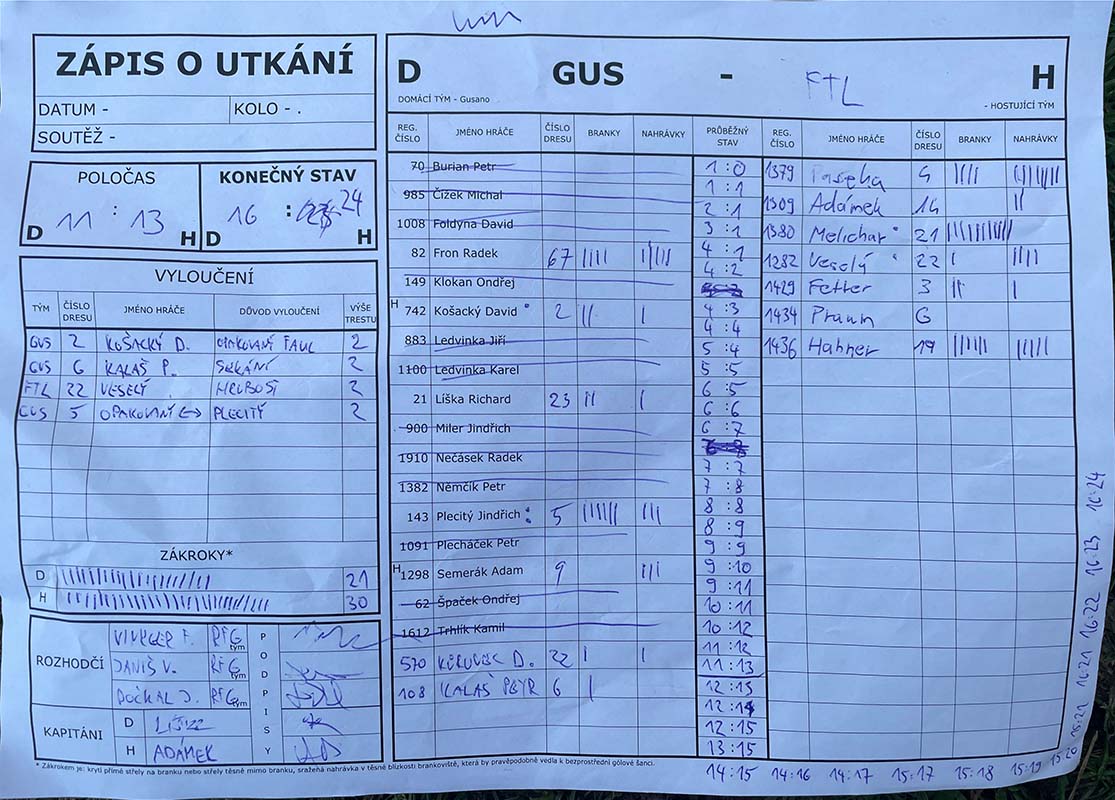 ZÁPIS O UTKÁNÍ
DATUM - KOLO - .
SOUTĚŽ -
POLOČAS
D 11 : 13 H
KONEČNÝ STAV
D 16 : 24 H
VYLOUČENÍ
TÝM ČÍSLO DRESU JMÉNO HRÁČE DŮVOD VYLOUČENÍ VÝŠE TRESTU
GUS 2 KOŠACKÝ D. OPAKOVANÝ FAUL 2
GUS 6 KALAŠ P. SEKÁNÍ 2
FTL 22 VESELÝ HRUBOST 2
GUS 5 OPAKOVANÝ ↔ PLECITÝ 2
ZÁKROKY*
D 21
H 30
ROZHODČÍ
RFG tým
DANIŠ V. RFG tým
DOČKAL J. RFG tým
PODPISY
KAPITÁNI
D
H ADÁMEK
* Zákrokem je: krytí přímé střely na branku nebo střely těsně mimo branku, sražená nahrávka v těsné blízkosti brankoviště, která by pravěpodobně vedla k bezprostřední gólové šanci.
D GUS - FTL H
DOMÁCÍ TÝM - Gusano - HOSTUJÍCÍ TÝM
REG. ČÍSLO JMÉNO HRÁČE ČÍSLO DRESU BRANKY NAHRÁVKY PRŮBĚŽNÝ STAV REG. ČÍSLO JMÉNO HRÁČE ČÍSLO DRESU BRANKY NAHRÁVKY
70 Burian Petr
985 Čížek Michal
1008 Foldyna David
82 Fron Radek 67 IIII IIIII
149 Klokan Ondřej
H 742 Košacký David 2 II I
883 Ledvinka Jiří
1100 Ledvinka Karel
21 Líška Richard 23 II I
900 Miler Jindřich
1910 Nečásek Radek
1382 Němčík Petr
143 Plecitý Jindřich 5 IIIIII III
1091 Plecháček Petr
H 1298 Semerák Adam 9 III
62 Špaček Ondřej
1612 Trhlík Kamil
570 D. 22 I I
108 KALAŠ PETR 6 I
1:0
1:1
2:1
3:1
4:1
4:2
4:3
4:4
5:4
5:5
6:5
6:6
6:7
7:7
7:8
8:8
8:9
9:9
9:10
9:11
10:11
10:12
11:12
11:13
12:13
12:14
12:15
13:15
14:15 14:16 14:17 15:17 15:18 15:19 15:20 15:21 16:21 16:22 16:23 16:24
1379 5 IIII
1309 Adámek 14 II
1380 Melichar 21
1282 Veselý 22 I IIII
1429 Fetter 3 II I
1434 Praum 6
1436 Hahner 19 IIIIII IIIII